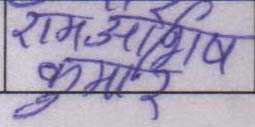 रामआशिष
कुमार